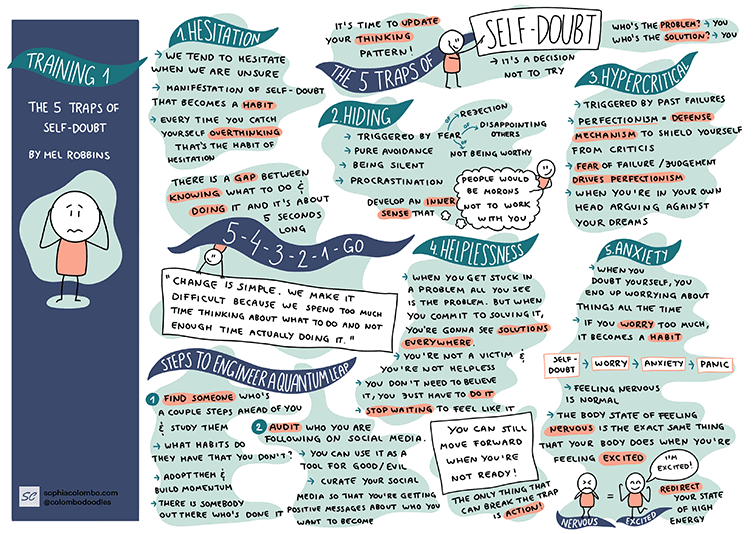 TRAINING 1
THE 5 TRAPS OF
SELF-DOUBT
BY MEL ROBBINS
SC
sophiacolombo.com
@colombodoodles
1. HESITATION
→ WE TEND TO HESITATE
WHEN WE ARE UNSURE
→ MANIFESTATION OF SELF-DOUBT
THAT BECOMES A HABIT
→ EVERY TIME YOU CATCH
YOURSELF OVERTHINKING
THAT'S THE HABIT OF
HESITATION
THERE IS A GAP BETWEEN
KNOWING WHAT TO DO &
DOING IT AND IT'S ABOUT
5 SECONDS
LONG
5-4-3-2-1-GO
"CHANGE IS SIMPLE. WE MAKE IT
DIFFICULT BECAUSE WE SPEND TOO MUCH
TIME THINKING ABOUT WHAT TO DO AND NOT
ENOUGH TIME ACTUALLY DOING IT."
IT'S TIME TO UPDATE
YOUR THINKING
PATTERN!
THE 5 TRAPS OF
SELF-DOUBT
→ IT'S A DECISION
NOT TO TRY
WHO'S THE PROBLEM? → YOU
WHO'S THE SOLUTION? → YOU
2. HIDING
→ TRIGGERED BY FEAR
REJECTION
DISAPPOINTING
OTHERS
NOT BEING WORTHY
→ PURE AVOIDANCE
→ BEING SILENT
→ PROCRASTINATION
DEVELOP AN INNER
SENSE THAT
PEOPLE WOULD
BE MORONS
NOT TO WORK
WITH YOU
3. HYPERCRITICAL
→ TRIGGERED BY PAST FAILURES
→ PERFECTIONISM = DEFENSE
MECHANISM TO SHIELD YOURSELF
FROM CRITICIS
→ FEAR OF FAILURE / JUDGEMENT
DRIVES PERFECTIONISM
→ WHEN YOU'RE IN YOUR OWN
HEAD ARGUING AGAINST
YOUR DREAMS
4. HELPLESSNESS
→ WHEN YOU GET STUCK IN
A PROBLEM ALL YOU SEE
IS THE PROBLEM. BUT WHEN
YOU COMMIT TO SOLVING IT,
YOU'RE GONNA SEE SOLUTIONS
EVERYWHERE.
→ YOU'RE NOT A VICTIM &
YOU'RE NOT HELPLESS
→ YOU DON'T NEED TO BELIEVE
IT, YOU JUST HAVE TO DO IT
→ STOP WAITING TO FEEL LIKE IT
YOU CAN STILL
MOVE FORWARD
WHEN YOU'RE
NOT READY!
THE ONLY THING THAT
CAN BREAK THE TRAP
IS ACTION!
5. ANXIETY
→ WHEN YOU
DOUBT YOURSELF, YOU
END UP WORRYING ABOUT
THINGS ALL THE TIME
→ IF YOU WORRY TOO MUCH,
IT BECOMES A HABIT
SELF-
DOUBT → WORRY → ANXIETY → PANIC
→ FEELING NERVOUS
IS NORMAL
→ THE BODY STATE OF FEELING
NERVOUS IS THE EXACT SAME THING
THAT YOUR BODY DOES WHEN YOU'RE
FEELING EXCITED
I'M
EXCITED!
=
NERVOUS
EXCITED
REDIRECT
YOUR STATE
OF HIGH
ENERGY
STEPS TO ENGINEER A QUANTUM LEAP
1 FIND SOMEONE WHO'S
A COUPLE STEPS AHEAD OF YOU
& STUDY THEM
→ WHAT HABITS DO
THEY HAVE THAT YOU DON'T?
→ ADOPT THEM &
BUILD MOMENTUM
→ THERE IS SOMEBODY
OUT THERE WHO'S DONE IT
2 AUDIT WHO YOU ARE
FOLLOWING ON SOCIAL MEDIA.
→ YOU CAN USE IT AS A
TOOL FOR GOOD/EVIL
→ CURATE YOUR SOCIAL
MEDIA SO THAT YOU'RE GETTING
POSITIVE MESSAGES ABOUT WHO YOU
WANT TO BECOME